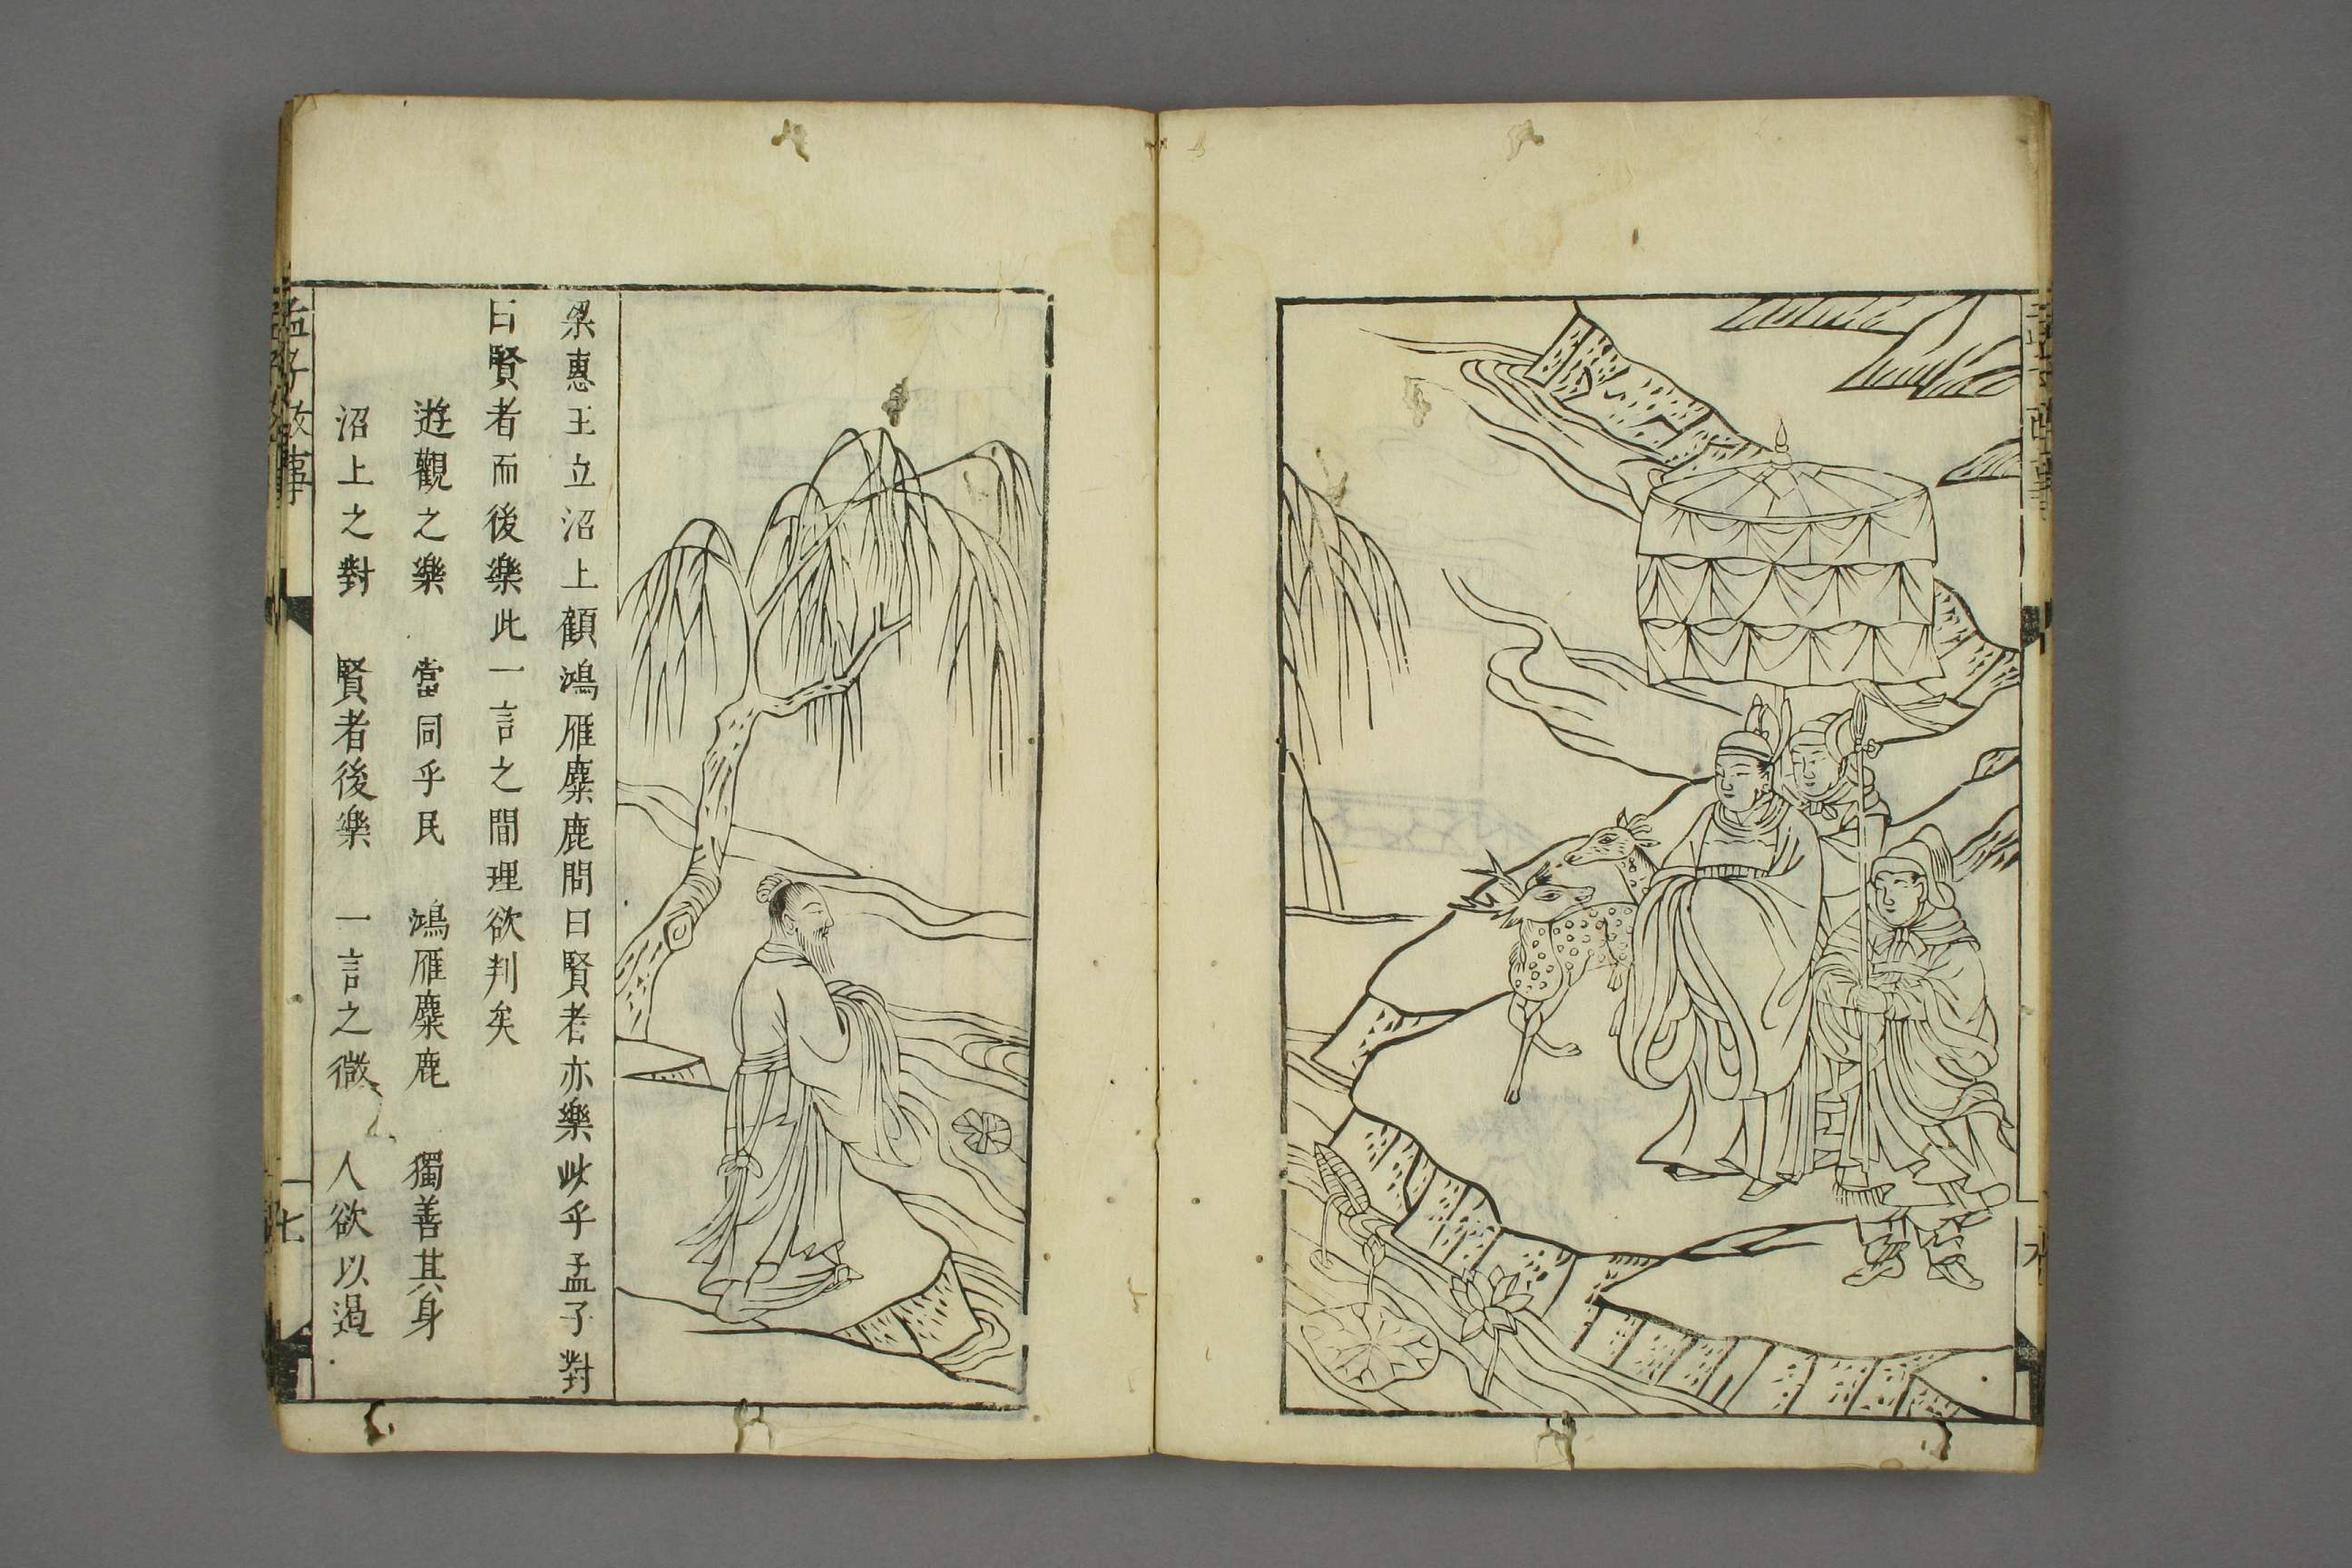 梁惠王立沼上顧鴻雁麋鹿問曰賢者亦樂此乎孟子對
曰賢者而後樂此一言之間理欲判矣
遊觀之樂　當同乎民　鴻雁麋鹿　獨善其身
沼上之對　賢者後樂　一言之微　人欲以遏
孟子故事
七